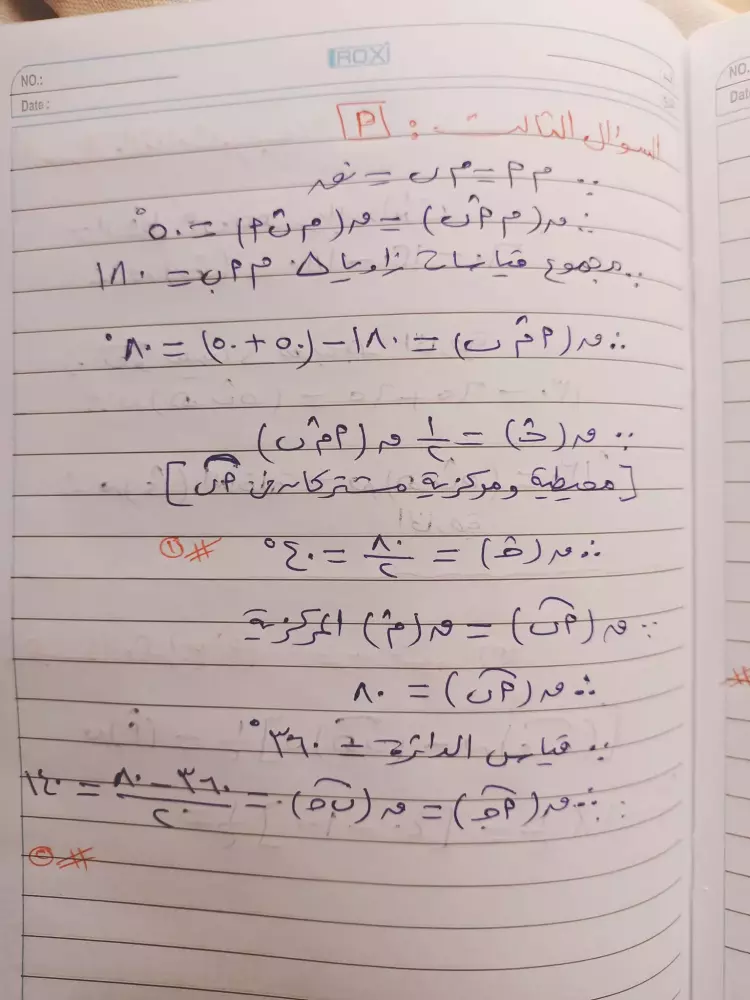 ROX
NO.:
Date :
السؤال الثالث : أ
∵ م أ = م ب = نق
∴ ق(م أ̂ ب) = ق(م ب̂ أ) = ٥٠°
∵ مجموع قياسات زوايا △ م أ ب = ١٨٠
∴ ق(أ م̂ ب) = ١٨٠ − (٥٠ + ٥٠) = ٨٠°
∵ ق(ج̂) = ١/٢ ق(أ م̂ ب)
[محيطية ومركزية مشتركان في أب]
∴ ق(ج̂) = ٨٠/٢ = ٤٠° # ①
∵ ق(أب) = ق(م̂) المركزية
∴ ق(أب) = ٨٠
∵ قياس الدائرة = ٣٦٠°
∴ ق(أج) = ق(ب ج) = (٣٦٠ − ٨٠)/٢ = ١٤٠
# ②
NO.
Dat
#